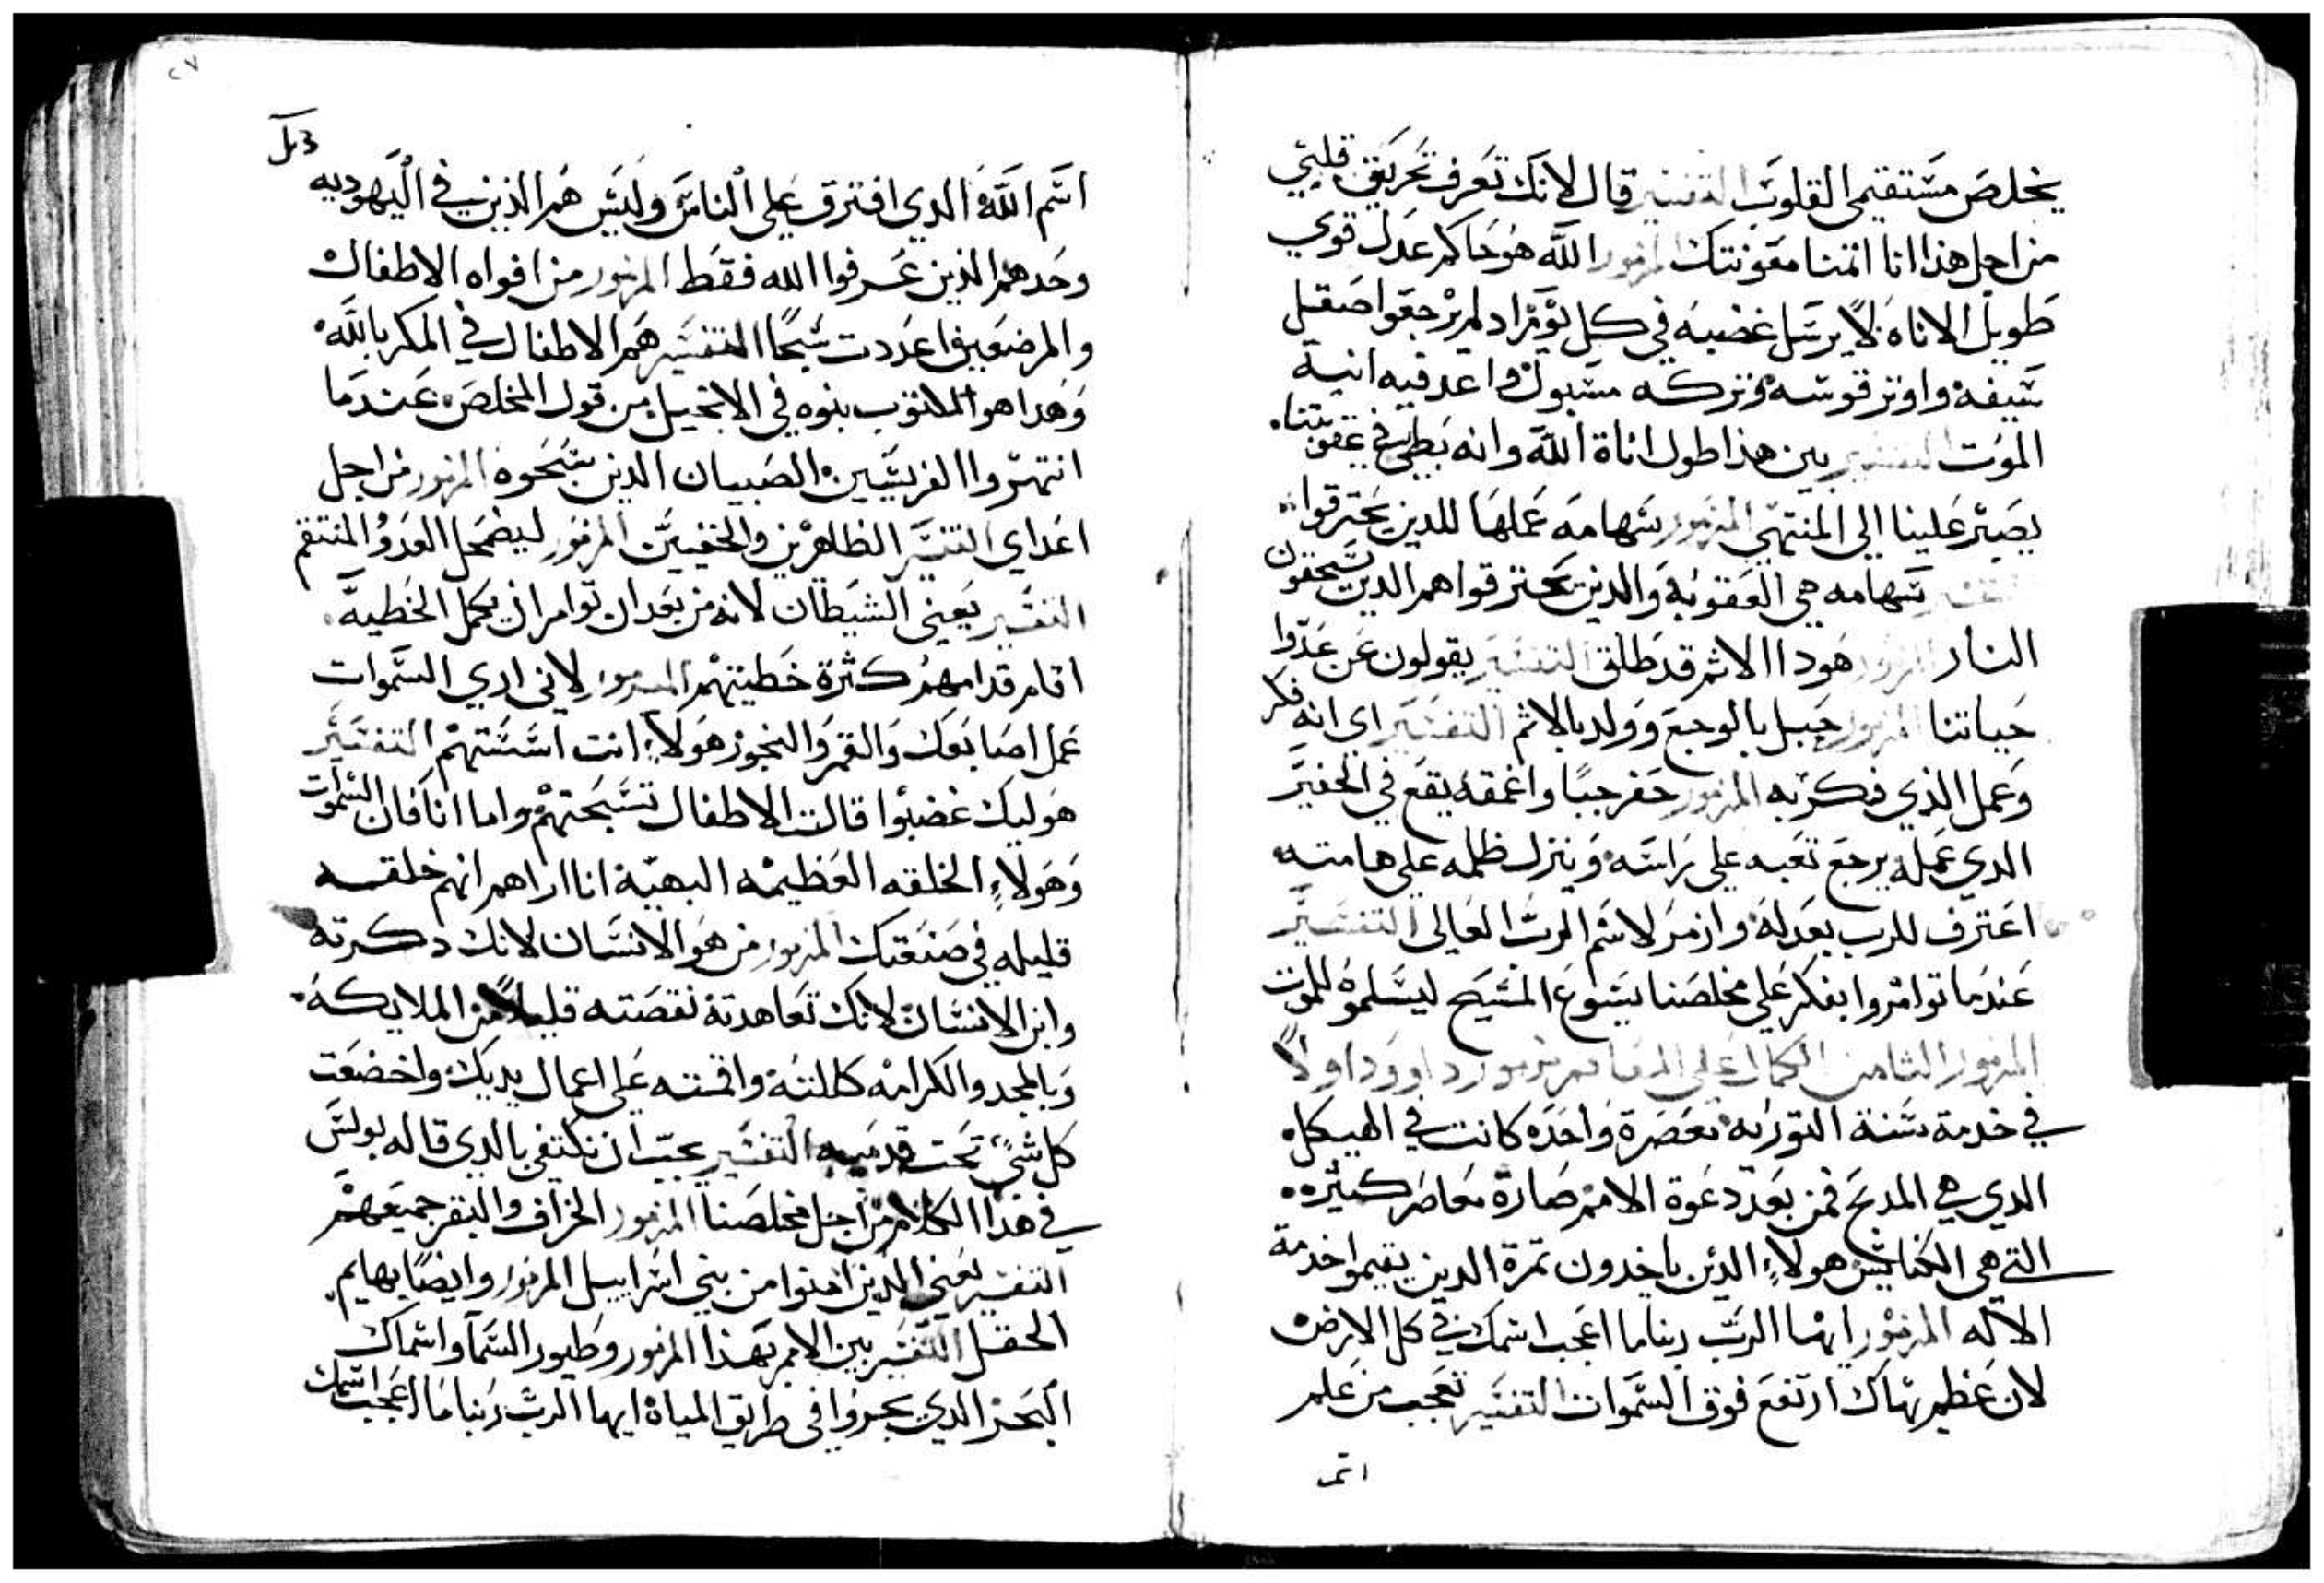 يخلص مستقيمي القلوب التفسير قال لانك تعرف تحريق قلبي
من اجل هذا انا اتمنا معونتك المزمور الله هو حاكم عدل قوي
طويل الاناه لا يرسل غضبه في كل يوم اد لم ترجعوا صقل
سيفه واوتر قوسه وتركه مسبول واعد فيه انية
الموت التفسير بين هذا طول اناة الله وانه بطي في عقوبتنا
يصبر علينا الي المنتهي المزمور سهامه عملها للدين يحترقوا
التفسير سهامه هي العقوبة والدين يحترقوا هم الدين يستحقون
النار المزمور هودا الاثم قد طلق التفسير يقولون عن عدوا
حياتنا المزمور حبل بالوجع وولد بالاثم التفسير اي انه فكر
وعمل الذي فكر به المزمور حفر جبا واغمقه يقع في الحفير
الدي عمله يرجع تعبه علي راسه وينزل ظلمه علي هامته
اعترف للرب بعدله وازمر لاسم الرب العالي التفسير
عندما توامروا بفكر علي مخلصنا يسوع المسيح ليسلموه للموت
المزمور الثامن الكمال علي المعاصر مزمور داوود اولا
في خدمة سنة التوراه معصرة واحده كانت في الهيكل
الدي هي المدبح فمن بعد دعوة الامم صارة معاصر كثيره
التي هي الكنائس هولاء الدين ياخدون تمرة الدين يقيموا خدمة
الاله المزمور ايها الرب ربنا ما اعجب اسمك في كل الارض
لان عظم بهاك ارتفع فوق السموات التفسير تعجب من علم
اتم
٢٧
اسم الله الدي افترق علي الناس وليس هم الذين في اليهوديه
وحدهم الذين عرفوا الله فقط المزمور من افواه الاطفال
والمرضعين اعددت سبحا التفسير هم الاطفال في المكر بالله
وهدا هو المكتوب بنوه في الانجيل من قول المخلص عندما
انتهروا الفريسيين الصبيان الدين سبحوه المزمور من اجل
اعداي التفسير الظاهرين والخفيين المزمور ليضمحل العدو المنتقم
التفسير يعني الشيطان لانه من بعد ان توامر ان يكمل الخطية
اقام قدامهم كثرة خطيتهم المزمور لاني اري السموات
عمل اصابعك والقمر والنجوم هولاء انت اسستهم التفسير
هوليك غضبوا قالت الاطفال تسبحتهم واما انا فان السموات
وهولاء الخلقه العظيمه البهية انا اراهم انهم خلقه
قليله في صنعتك المزمور من هو الانسان لانك دكرته
وابن الانسان لانك تعاهدته نقصته قليلا من الملايكه
وبالمجد والكرامه كاللته واقمته علي اعمال يديك واخضعت
كل شي تحت قدميه التفسير يجب ان نكتفي بالدي قاله بولس
في هدا الكلام من اجل مخلصنا المزمور الخراف والبقر جميعهم
التفسير يعني الدين امنوا من بني اسراييل المزمور وايضا بهايم
الحقل التفسير بين الامم بهذا المزمور وطيور السما واسماك
البحر الدي يجروا في طريق المياة ايها الرب ربنا ما اعجب اسمك